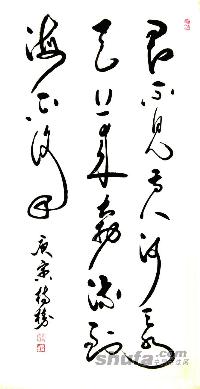 君不见黄河之水
天上来奔流到
海不复回
庚寅
shufa.com